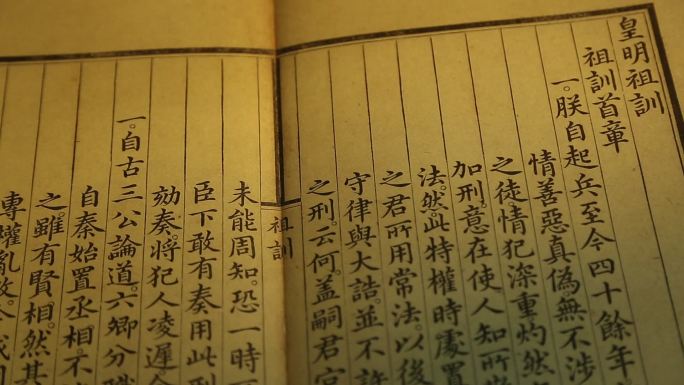 皇明祖訓
祖訓首章
一。朕自起兵至今四十餘年
情善惡真偽無不涉
之徒情犯深重灼然
加刑。意在使人知所
法。然此特權時處置
之君所用常法。以後
守律與大誥。並不許
之刑。云何。蓋嗣君宮
祖訓
未能周知。恐一時
臣下敢有奏用此刑
劾奏。將犯人凌遲
一。自古三公論道。六卿分職
自秦始置丞相。不
之。雖有賢相。然其
專權亂政。今我